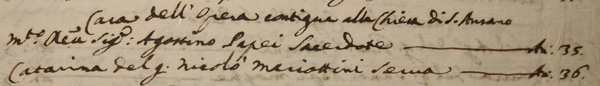 Casa dell'Opera contigua alla Chiesa di S. Ansano
m:to Reu Sig:r Agostino Papei Sacerdote — An: 35.
Catarina del q. Nicolò Mariottini Serua — An: 36.